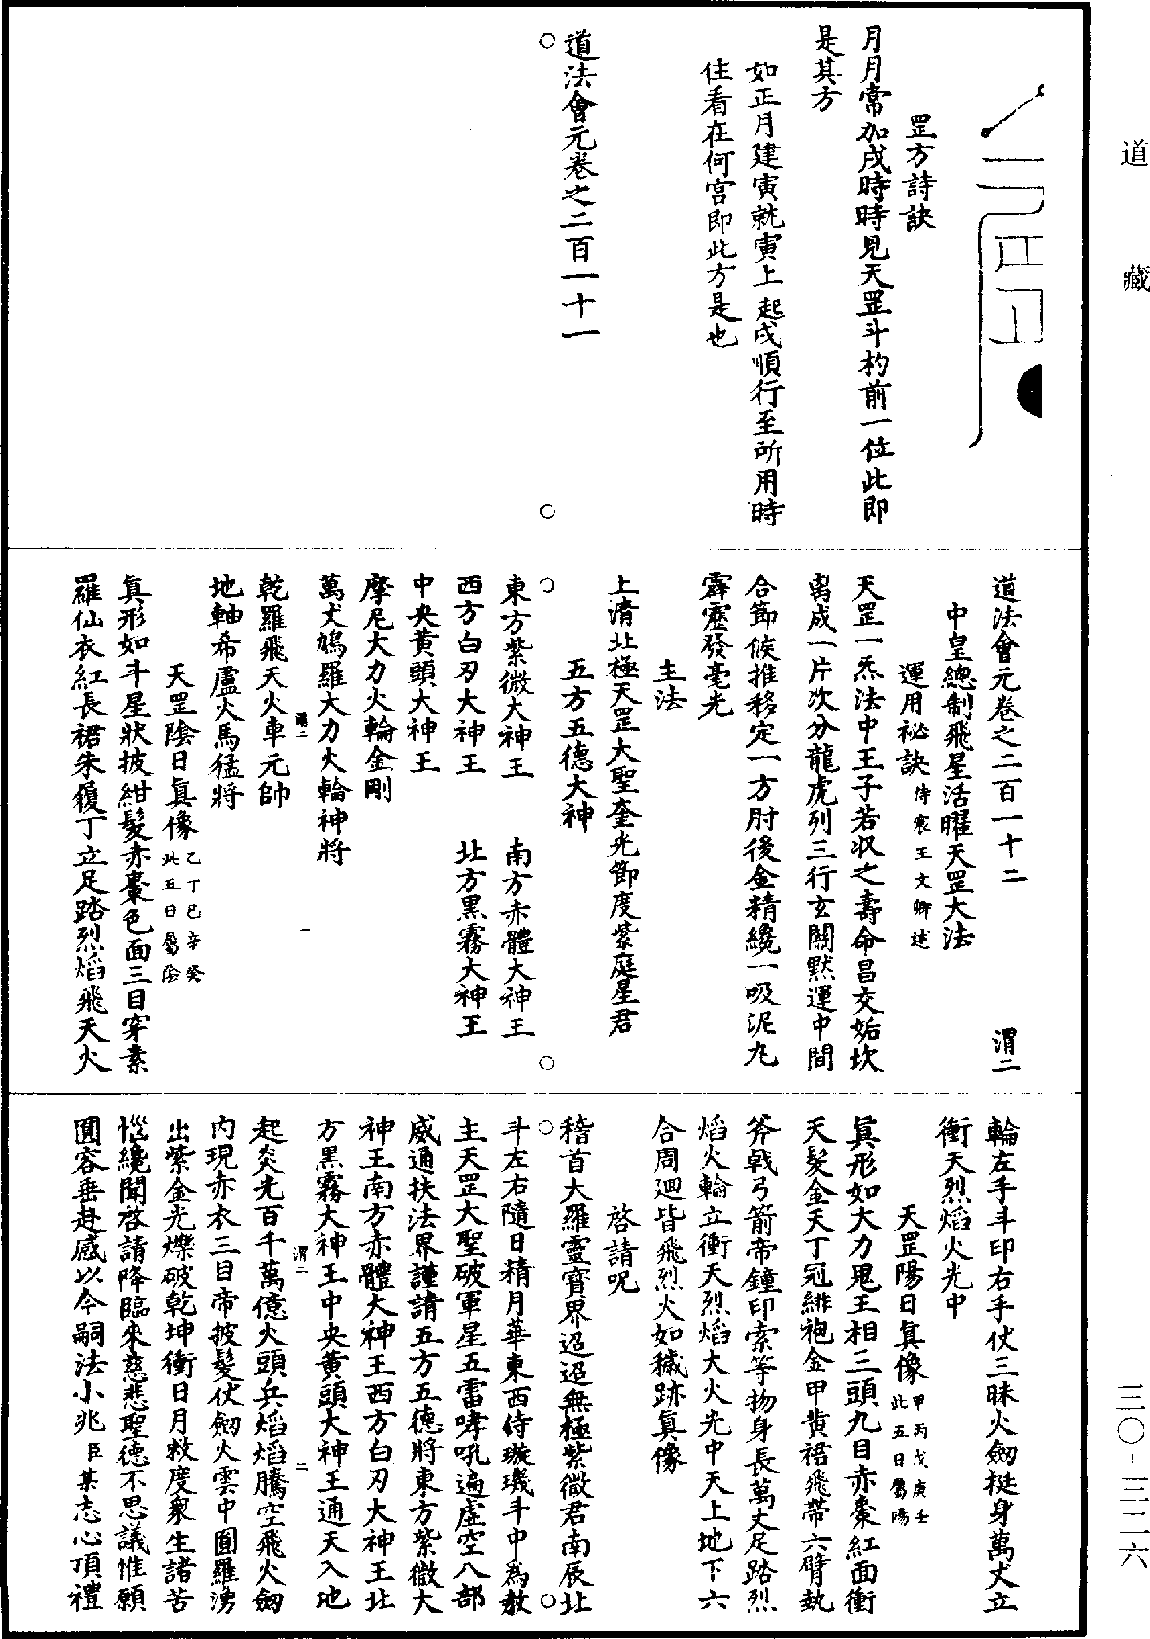 道藏
罡方詩訣
月月常加戌時時見天罡斗杓前一位此即
是其方
如正月建寅就寅上起戌順行至所用時
住看在何宮即此方是也
道法會元卷之二百一十一
道法會元卷之二百一十二
渭二
中皇總制飛星活曜天罡大法
運用祕訣侍宸王文卿述
天罡一炁法中王子若収之壽命昌交姤坎
离成一片次分龍虎列三行玄關默運中間
合節候推移定一方肘後金精纔一吸泥丸
霹靂發毫光
主法
上清北極天罡大聖奎光節度紫庭星君
五方五德大神
東方紫微大神王
南方赤體大神王
西方白刃大神王
北方黑霧大神王
中央黃頭大神王
摩尼大力火輪金剛
萬丈鳩羅大力火輪神將
渭二
一
乾羅飛天火車元帥
地軸希盧火馬猛將
天罡陰日真像乙丁巳辛癸
此五日屬陰
真形如斗星狀披紺髮赤棗色面三目穿素
羅仙衣紅長裙朱履丁立足踏烈焰飛天火
輪左手斗印右手仗三昧火劒挺身萬丈立
衝天烈焰火光中
天罡陽日真像甲丙戊庚壬
此五日屬陽
真形如大力鬼王相三頭九目赤棗紅面衝
天髮金天丁冠緋袍金甲黃裙飛帶六臂執
斧戟弓箭帝鐘印索等物身長萬丈足踏烈
焰火輪立衝天烈焰大火光中天上地下六
合周迴皆飛烈火如穢跡真像
啓請呪
稽首大羅靈寶界迢迢無極紫微君南辰北
斗左右隨日精月華東西侍璇璣斗中為教
主天罡大聖破軍星五雷哮吼遍虛空八部
威通扶法界謹請五方五德將東方紫微大
神王南方赤體大神王西方白刃大神王北
方黑霧大神王中央黃頭大神王通天入地
渭二
二
起炎光百千萬億火頭兵焰焰騰空飛火劒
內現赤衣三目帝披髮仗劒火雲中圓羅湧
出紫金光爍破乾坤衝日月救度衆生諸苦
惱纔聞啓請降臨來慈悲聖德不思議惟願
圓容垂赴感以今嗣法小兆臣某志心頂禮
三〇-三二六